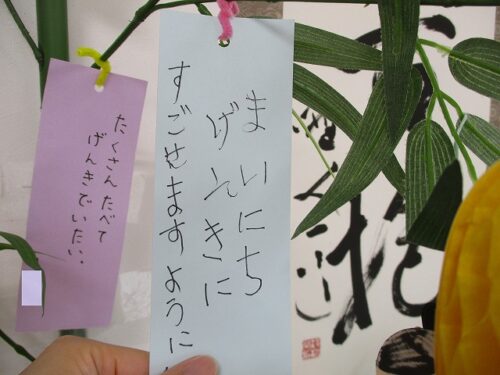 まいにち
げんきに
すごせますように
たくさんたべて
げんきでいたい。